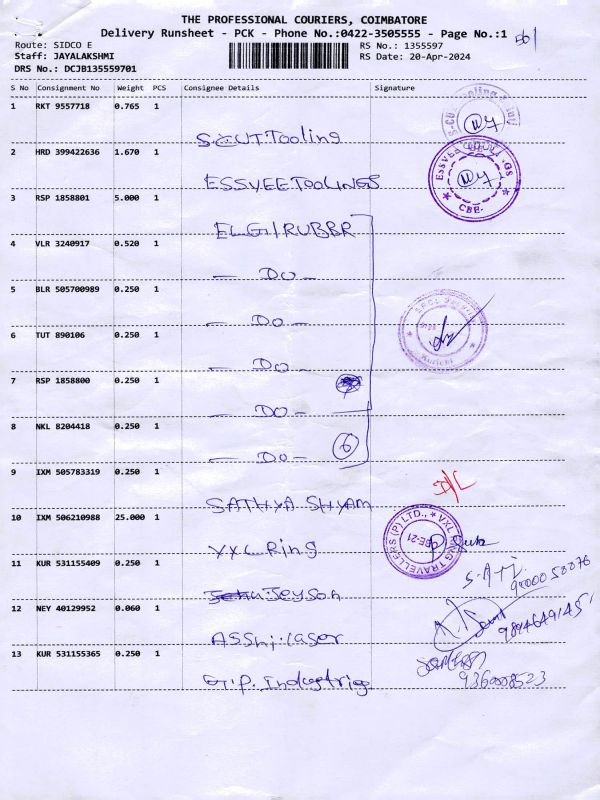 THE PROFESSIONAL COURIERS, COIMBATORE
Delivery Runsheet - PCK - Phone No.:0422-3505555 - Page No.:1
Route: SIDCO E
Staff: JAYALAKSHMI
DRS No.: DCJB135559701
RS No.: 1355597
RS Date: 20-Apr-2024
S No Consignment No Weight PCS Consignee Details Signature
1 RKT 9557718 0.765 1
SCUT Tooling
2 HRD 399422636 1.670 1
ESSVEE TOOLINGS
ESSVEE TOOLINGS
CBE-
3 RSP 1858801 5.000 1
ELGI RUBBR
4 VLR 3240917 0.520 1
— DO —
5 BLR 505700989 0.250 1
— DO —
6 TUT 890106 0.250 1
— DO —
Kurichi
7 RSP 1858800 0.250 1
— DO —
8 NKL 8204418 0.250 1
6
— DO —
9 IXM 505783319 0.250 1
SATHYA SHYAM
10 IXM 506210988 25.000 1
VXL RING TRAVELLERS (P) LTD., *
CBE-21
VXL Ring
11 KUR 531155409 0.250 1
Jeyson
12 NEY 40129952 0.060 1
9894649145
Asshi laser
13 KUR 531155365 0.250 1
9360008523
G.P. Industries